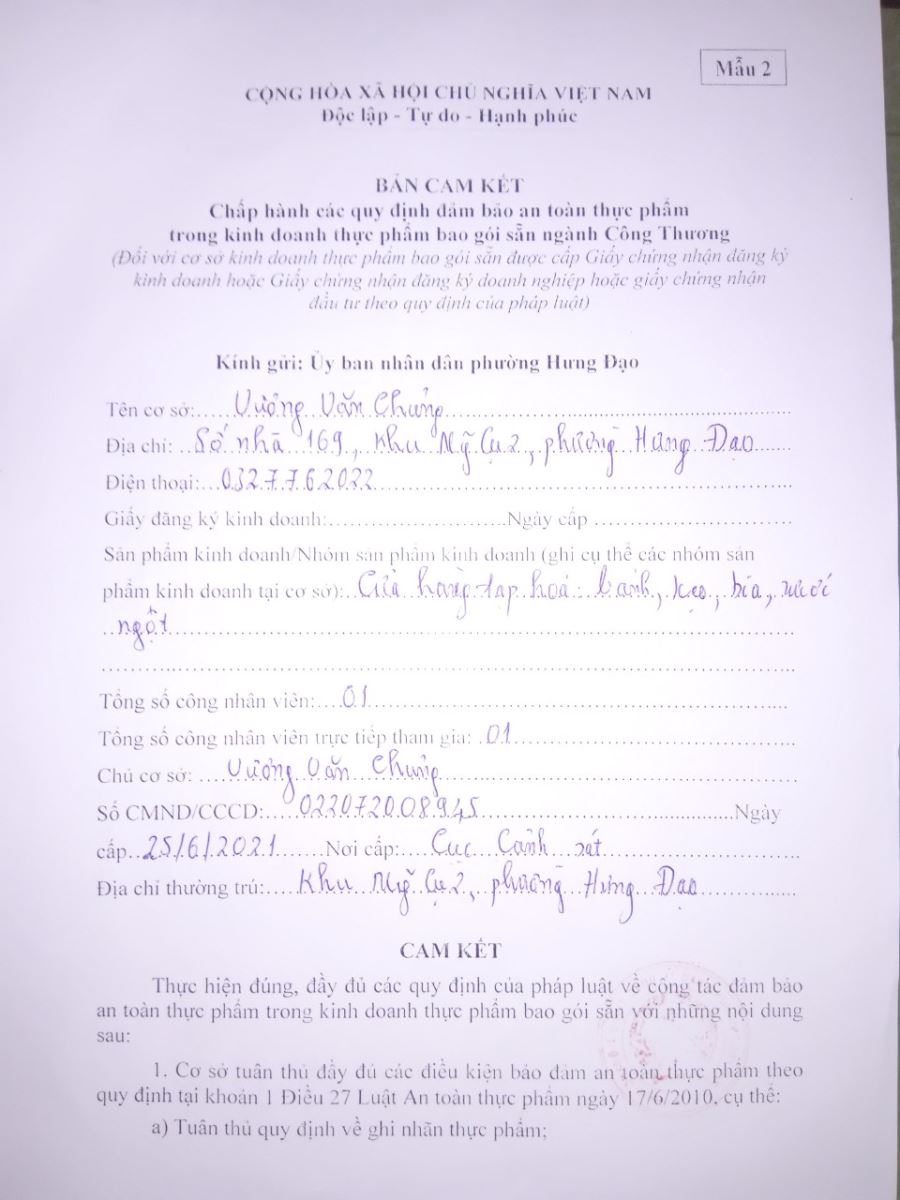 Mẫu 2
CỘNG HÒA XÃ HỘI CHỦ NGHĨA VIỆT NAM
Độc lập - Tự do - Hạnh phúc
BẢN CAM KẾT
Chấp hành các quy định đảm bảo an toàn thực phẩm
trong kinh doanh thực phẩm bao gói sẵn ngành Công Thương
(Đối với cơ sở kinh doanh thực phẩm bao gói sẵn được cấp Giấy chứng nhận đăng ký
kinh doanh hoặc Giấy chứng nhận đăng ký doanh nghiệp hoặc giấy chứng nhận
đầu tư theo quy định của pháp luật)
Kính gửi: Ủy ban nhân dân phường Hưng Đạo
Tên cơ sở: Vương Văn Chưởng
Địa chỉ: Số nhà 169, Khu Mỹ Cụ 2, phường Hưng Đạo
Điện thoại: 0327762022
Giấy đăng ký kinh doanh:..........Ngày cấp ..........
Sản phẩm kinh doanh/Nhóm sản phẩm kinh doanh (ghi cụ thể các nhóm sản
phẩm kinh doanh tại cơ sở): Cửa hàng tạp hoá: bánh, kẹo, bia, nước
ngọt
Tổng số công nhân viên: 01
Tổng số công nhân viên trực tiếp tham gia: 01
Chủ cơ sở: Vương Văn Chưởng
Số CMND/CCCD: 022072008945 Ngày
cấp 25/6/2021 Nơi cấp: Cục Cảnh sát
Địa chỉ thường trú: Khu Mỹ Cụ 2, phường Hưng Đạo
CAM KẾT
Thực hiện đúng, đầy đủ các quy định của pháp luật về công tác đảm bảo
an toàn thực phẩm trong kinh doanh thực phẩm bao gói sẵn với những nội dung
sau:
1. Cơ sở tuân thủ đầy đủ các điều kiện bảo đảm an toàn thực phẩm theo
quy định tại khoản 1 Điều 27 Luật An toàn thực phẩm ngày 17/6/2010, cụ thể:
a) Tuân thủ quy định về ghi nhãn thực phẩm;